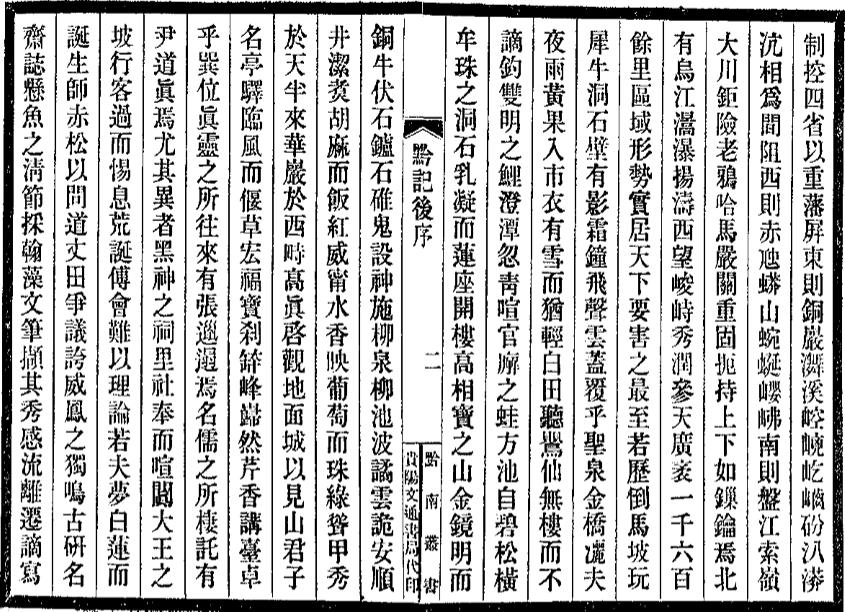 制控四省以重藩屏東則銅嚴潕溪崆嶢屹崷砏汃漭
沆相爲間阻西則赤虺蟒山蜿蜒巊岪南則盤江索嶺
大川鉅險老鴉哈馬嚴關重固扼持上下如鏁鑰焉北
有烏江瀥瀑揚濤西望峻峙秀潤參天廣袤一千六百
餘里區域形勢實居天下要害之最至若歷倒馬坡玩
犀牛洞石壁有影霜鐘飛聲雲蓋覆乎聖泉金橋灑夫
夜雨黃果入市衣有雪而猶輕白田聽鸎仙無樓而不
謫釣雙明之鯉澄潭忽靑喧官廨之蛙方池自碧松橫
牟珠之洞石乳凝而蓮座開樓高相寶之山金鏡明而
黔記後序
二
黔南叢書
貴陽文通書局代印
銅牛伏石鑪石碓鬼設神施柳泉柳池波譎雲詭安順
井潔煑胡麻而飯紅威甯水香映葡萄而珠綠聳甲秀
於天半來華嚴於西時高眞啓觀地面城以見山君子
名亭驛臨風而偃草宏福寶刹鉢峰巋然芹香講臺卓
乎巽位眞靈之所往來有張邋遢焉名儒之所棲託有
尹道眞焉尤其異者黑神之祠里社奉而喧闐大王之
坡行客過而惕息荒誕傅會難以理論若夫夢白蓮而
誕生師赤松以問道丈田爭議誇威鳳之獨鳴古研名
齋誌懸魚之淸節採翰藻文筆擷其秀感流離遷謫寫